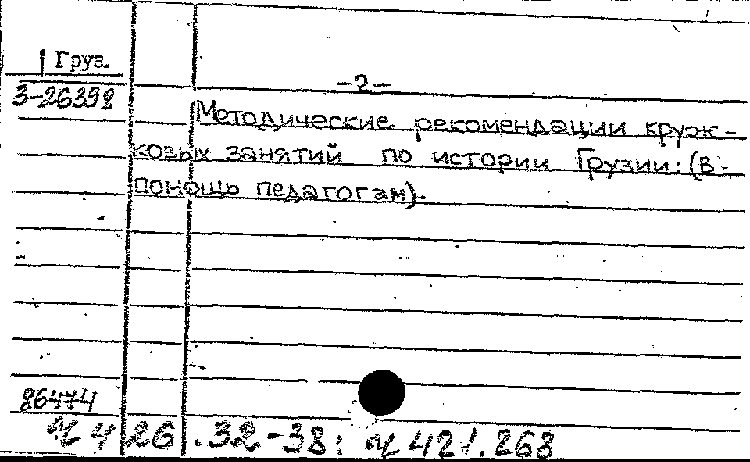 Груз.
3-26398
-2-
Методические рекомендации круж-
ковых занятий по истории Грузии: (В
помощь педагогам).
86474
Ч 426.32-38: Ч 421.268